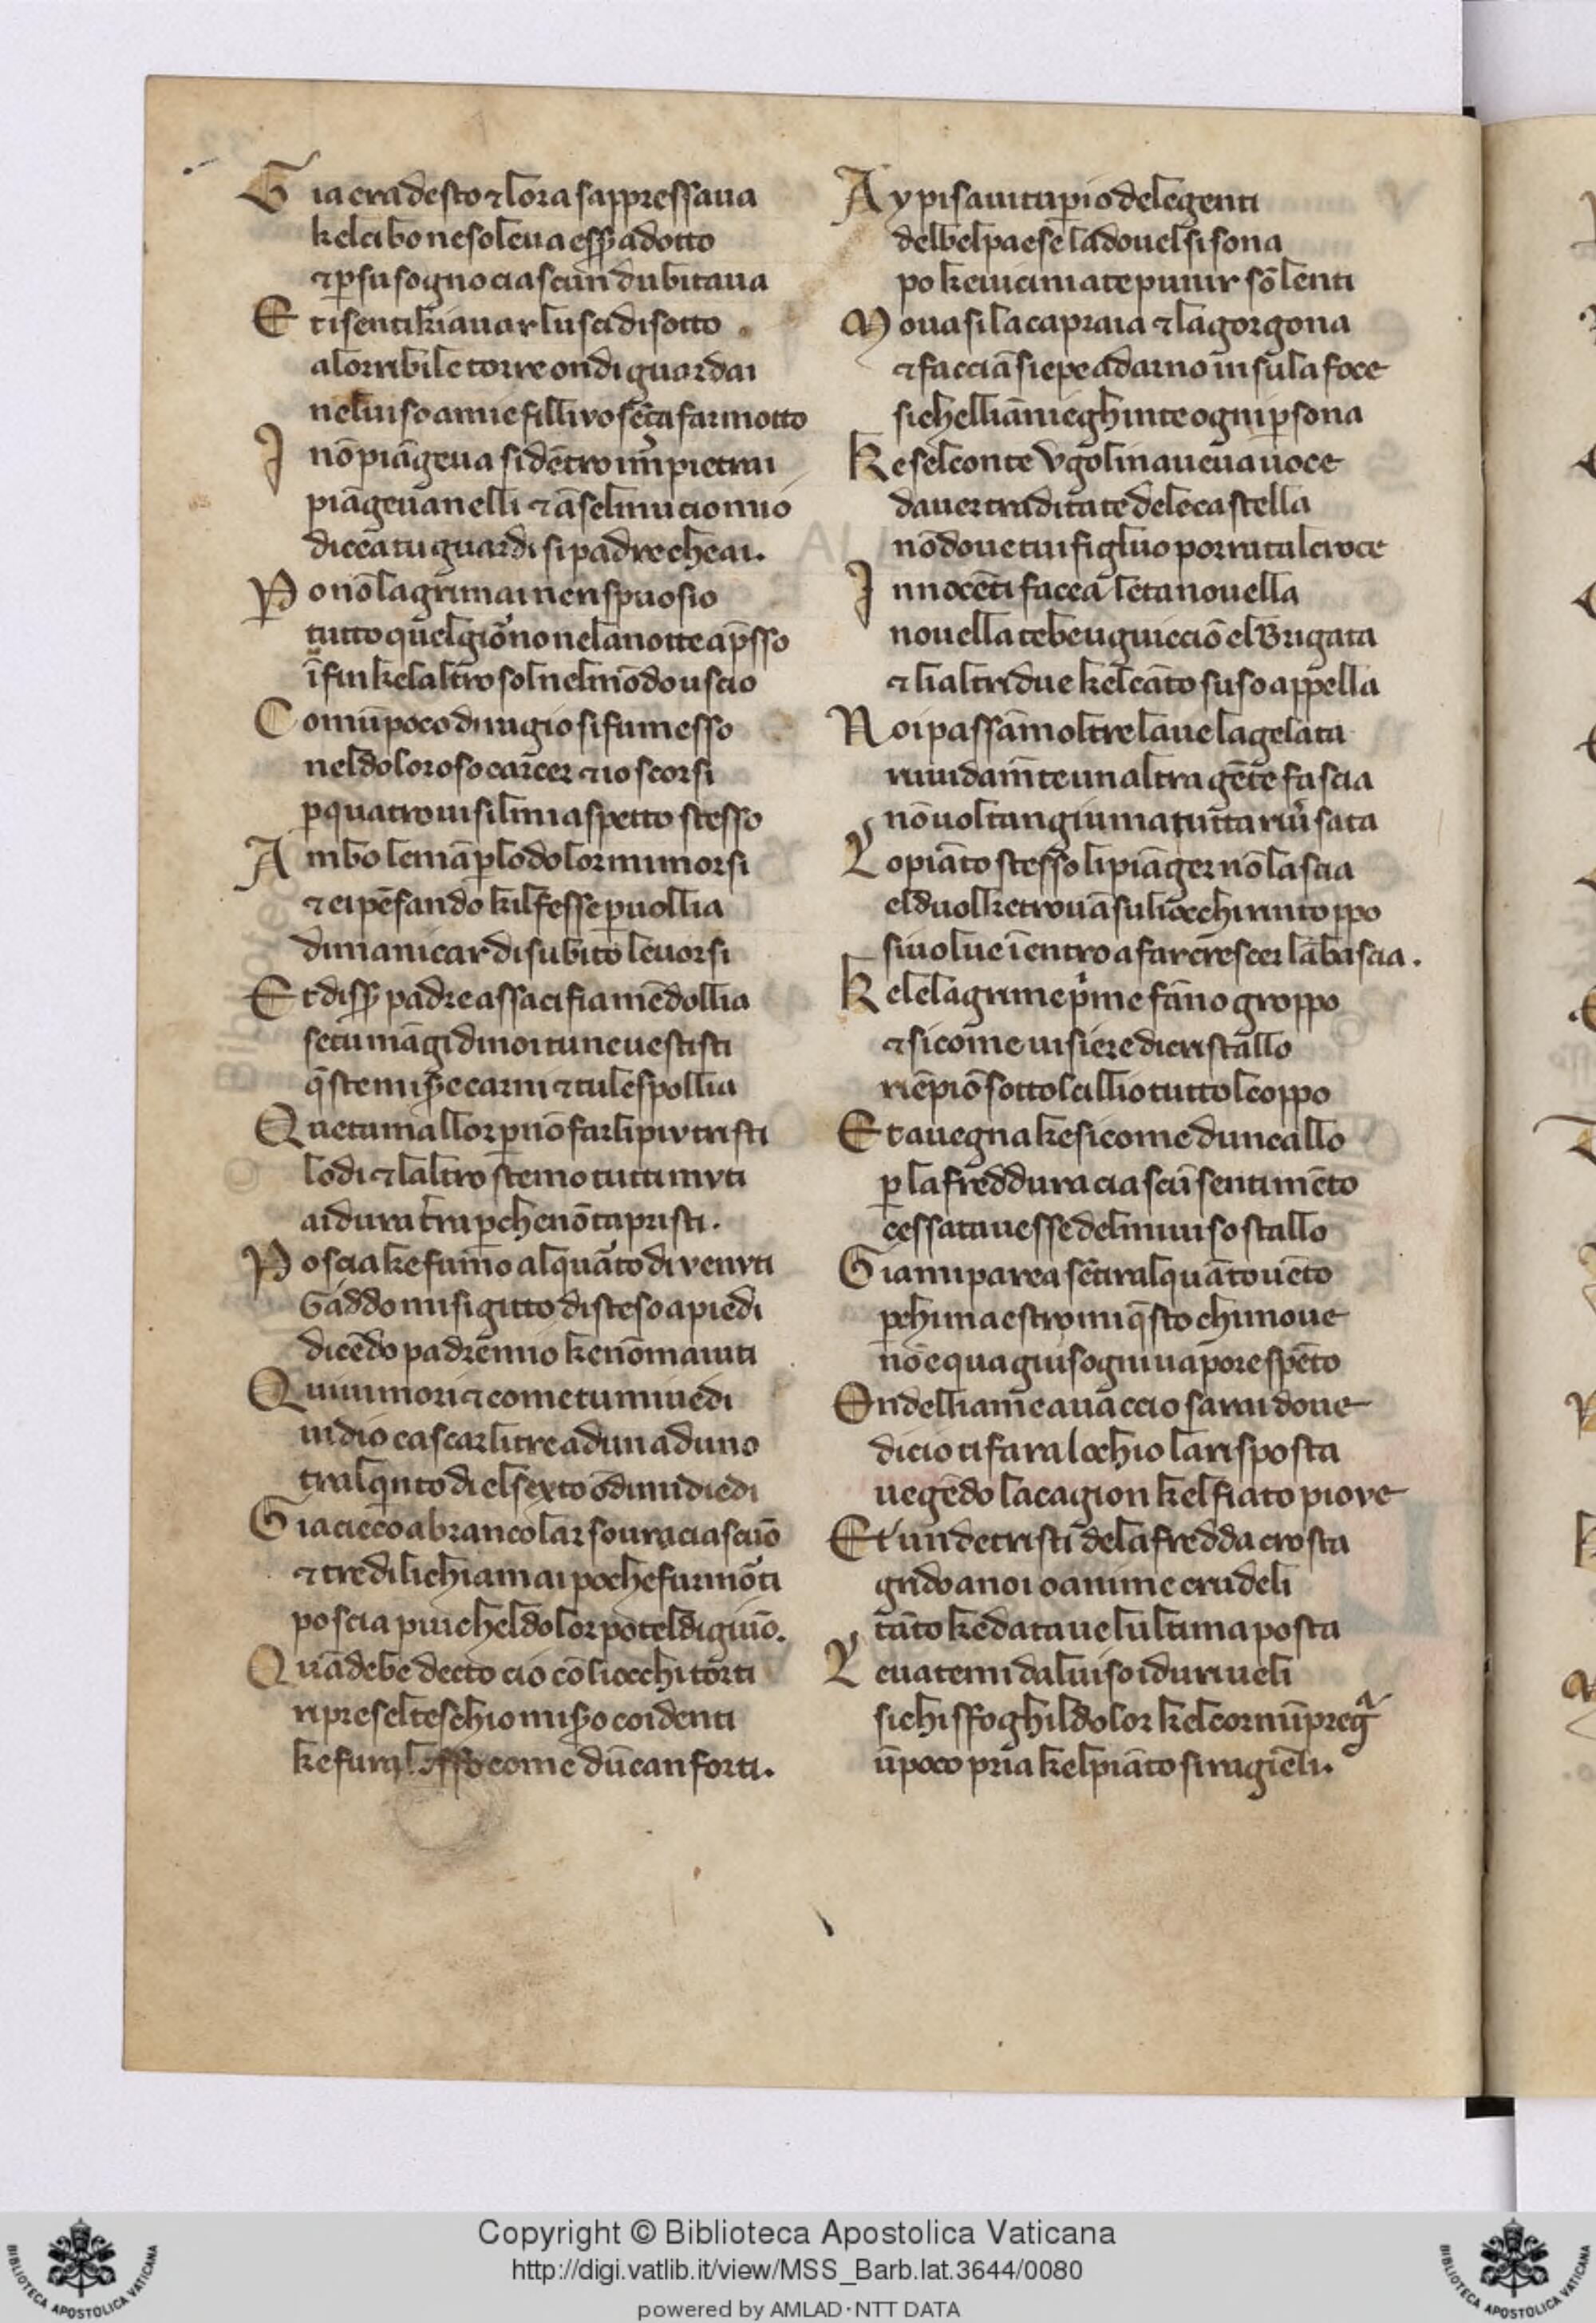 Gia era desto ⁊ lora sappressaua
kel cibo ne soleua eēr adotto
⁊ p̱ su sogno ciascun dubitaua
Et i senti kiauar luscidi sotto
alorribile torre ondi guardai
nel uiso amie filliuo sēça far motto
I nō piāgeua si dētro īmpietrai
piāgeuan elli ⁊ āselmucio mio
dicea tu guardi si padre che ai.
Po nō lagrimai ne rispuosio
tutto quel giorno ne la notte ap̄sso
īfin kelaltro sol nel mōdo uscio
Com ū poco di ragio si fu messo
nel doloroso carcer ⁊ io scorsi
p̱ quatro uisi li mi aspetto stesso
Ambo le mā p̱ lo dolor mi morsi
⁊ ei pēsando kil fesse p̱ uollia
di manicar di subito leuorsi
Et diss̄ padre assaci fia mē dollia
se tu māgi di noi tu ne uestisti
q̄ste mis̄e carni ⁊ tu le spollia
Quetami allor p̱ nō farli piv tristi
lo di ⁊ laltro stemo tutti mvti
ai dura tr̄a p̱che nō tapristi.
Poscia ke fumo al quārto di venvti
Gaddo mi si gitto disteso a piedi
dicēdo padre mio ke nō maiuti
Quiui mori ⁊ come tu mi uedi
uidio cascar li tre ad un ad uno
tral q̄nto di el sexto ōdi mi diedi
Gia cieco a brancolar soura ciascūo
⁊ tre di li chiamai po che fur mōti
poscia piu chel dolor pote l digiuō.
Quādebe decto cio cō liocchi torti
riprese l teschio mis̄o co i denti
ke furo a losso come dū can forti.
Ay pisa uitup̱io de le genti
del bel paese la doue l si sona
po ke uicini a te punir sō lenti
Mouasi la capraia ⁊ la gorgona
⁊ facciā siepe ad arno in su la foce
si chelli ānieghi in te ogni p̱sona
Ke sel conte Vgolin aueua uoce
dauer tradita te de le castella
nō doue tu i figliuo porra tal croce
Innocēti facea leta nouella
nouella tebe uguiciō el Brigata
⁊ li altri due kel cāto suso appella
Noi passām oltre laue la gelata
ruuidam̄te un altra gēte fascia
nō uolta in giu ma tutta riu̓sata
Lo piāto stesso li piāger nō lascia
el duol ke trouā su liocchi rintoppo
si uolue ī entro a far crescer lābascia.
Ke le lagrime p̄me fāno groppo
⁊ si come uisiere di cristallo
riēpiō sotto l cillio tutto l coppo
Et auegna ke si come dun callo
p̱ la freddura ciascū sentimēto
cessato auesse del mi uiso stallo
Gia mi parea sētir alquāto uēto
p̱chi maestro mi q̄sto chi moue
nō e qua giu sogni uapore spēto
Ondelli a me auaccio sarai doue
di cio ti fara lochio la risposta
uegēdo la cagion kel fiato piove
Et un de tristi de la fredda crosta
grido a noi o anime crudeli
tāto ke data ue lultima posta
Leuatemi dal uiso i duri ueli
si chi sfoghi l dolor kel cor mīpreg̃
ū poco pria kel piāto si ragieli.
Copyright © Biblioteca Apostolica Vaticana
http://digi.vatlib.it/view/MSS_Barb.lat.3644/0080
powered by AMLAD·NTT DATA